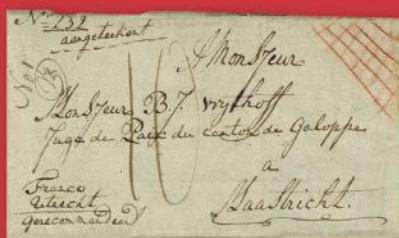 No 232
aangeteekent
No 1
10
A Monsieur
Monsieur B. J. Wythoff
Juge de Paix du canton de Galoppe
a
Maastricht.
Franco
Utrecht
gerecommandeerd